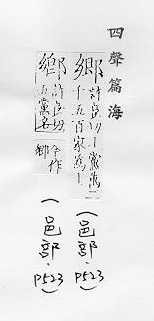 四聲篇海
鄉許良切丨黨萬二
千五百家爲丨
(邑部.P523)
鄉許良切
五黨名
今作
鄉
(邑部.P523)